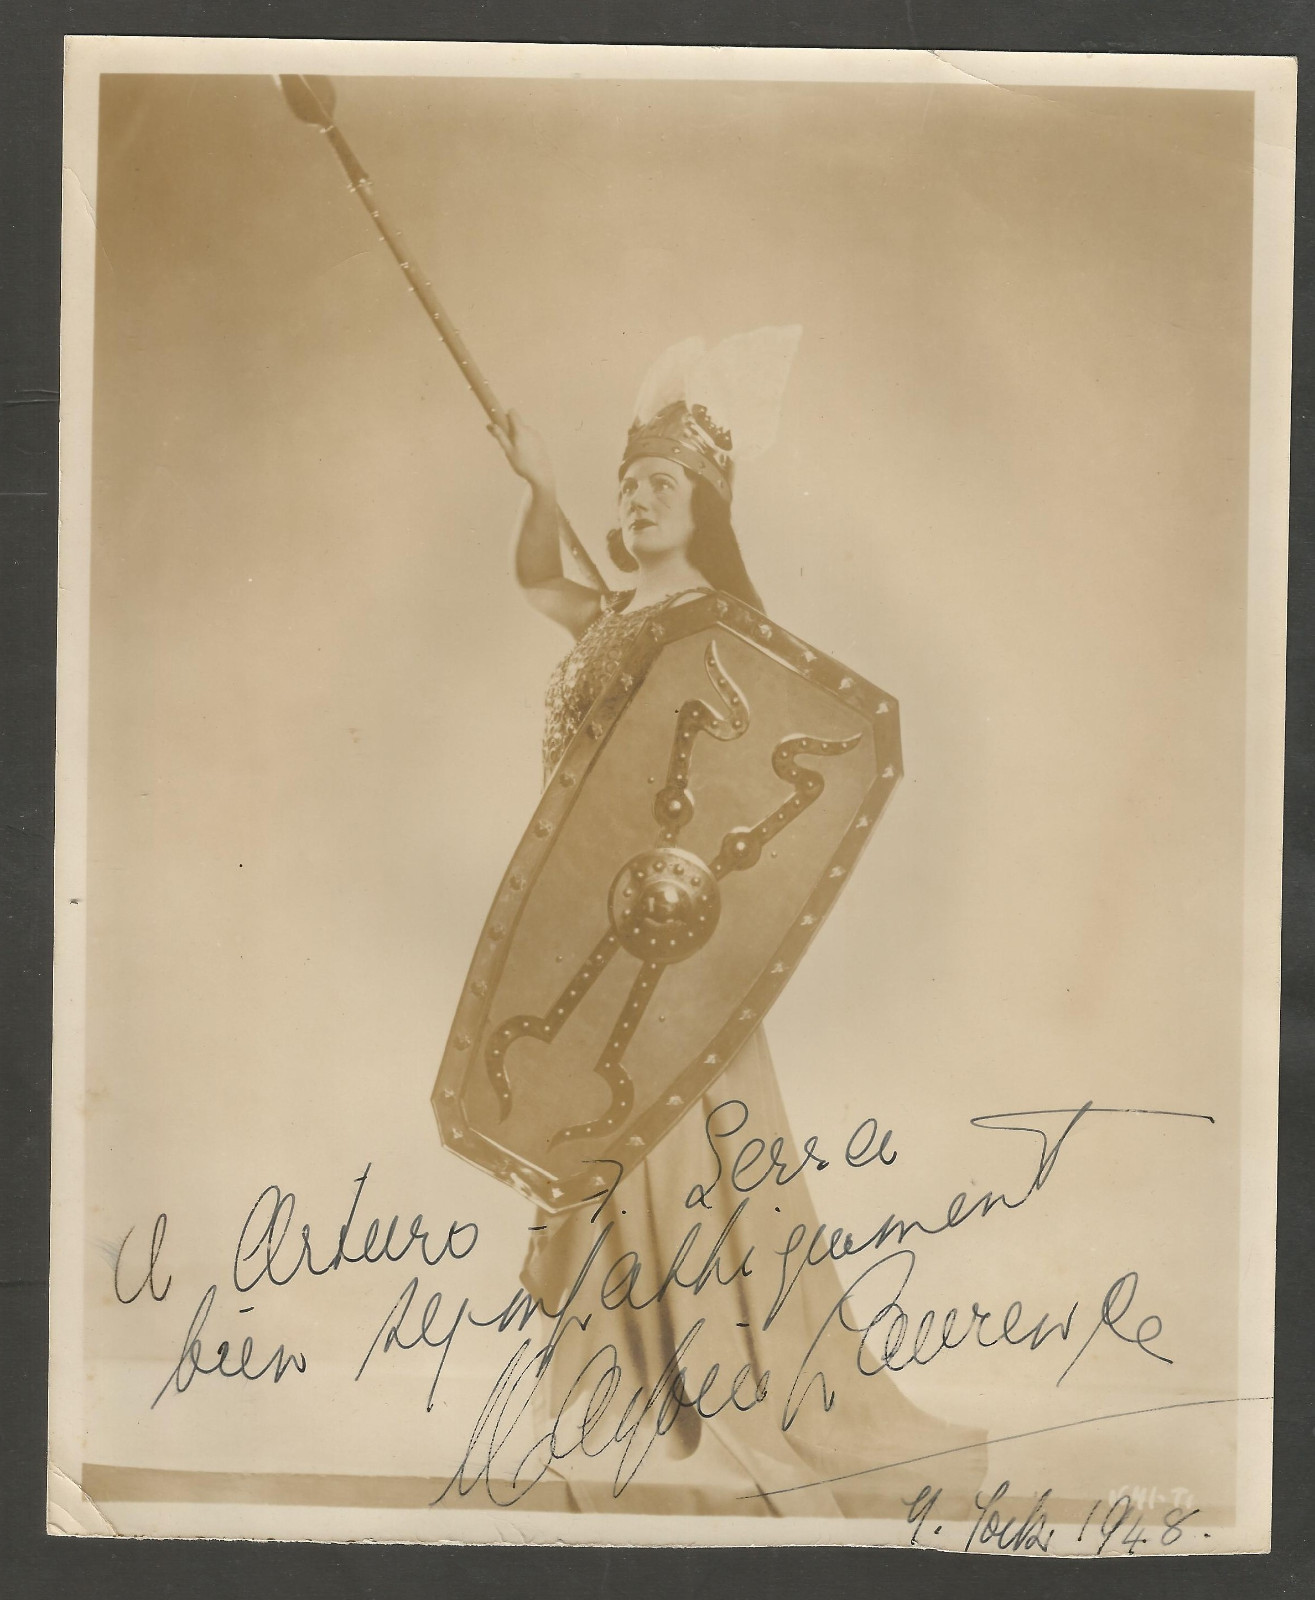 A Arturo - F. Serra
bien sympathiquement
Marjorie Lawrence
N. York 1948.